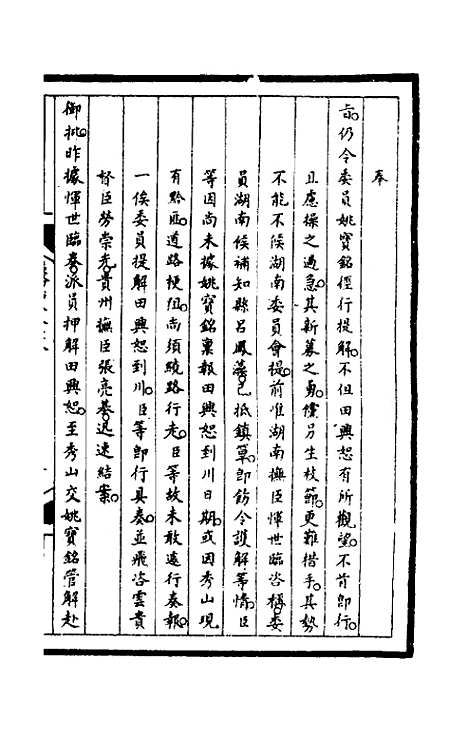 奉
旨。仍令委員姚寶銘徑行提解。不但田興恕有所觀望。不肯即行。
且慮操之過急。其新募之勇。儻另生枝節。更難措手。其勢
不能不候湖南委員會提。前准湖南撫臣惲世臨咨稱。委
員湖南候補知縣呂鳳藻。已抵鎮篁。即飭令護解等情。臣
等因尚未據姚寶銘稟報田興恕到川日期。或因秀山現
有黔匪。道路梗阻。尚須繞路行走。臣等故未敢遠行奏報。
一俟委員提解田興恕到川。臣等即行具奏。並飛咨雲貴
督臣勞崇光。貴州撫臣張亮基。迅速結案。
御批。昨據惲世臨奏。派員押解田興恕。至秀山交姚寶銘管解赴